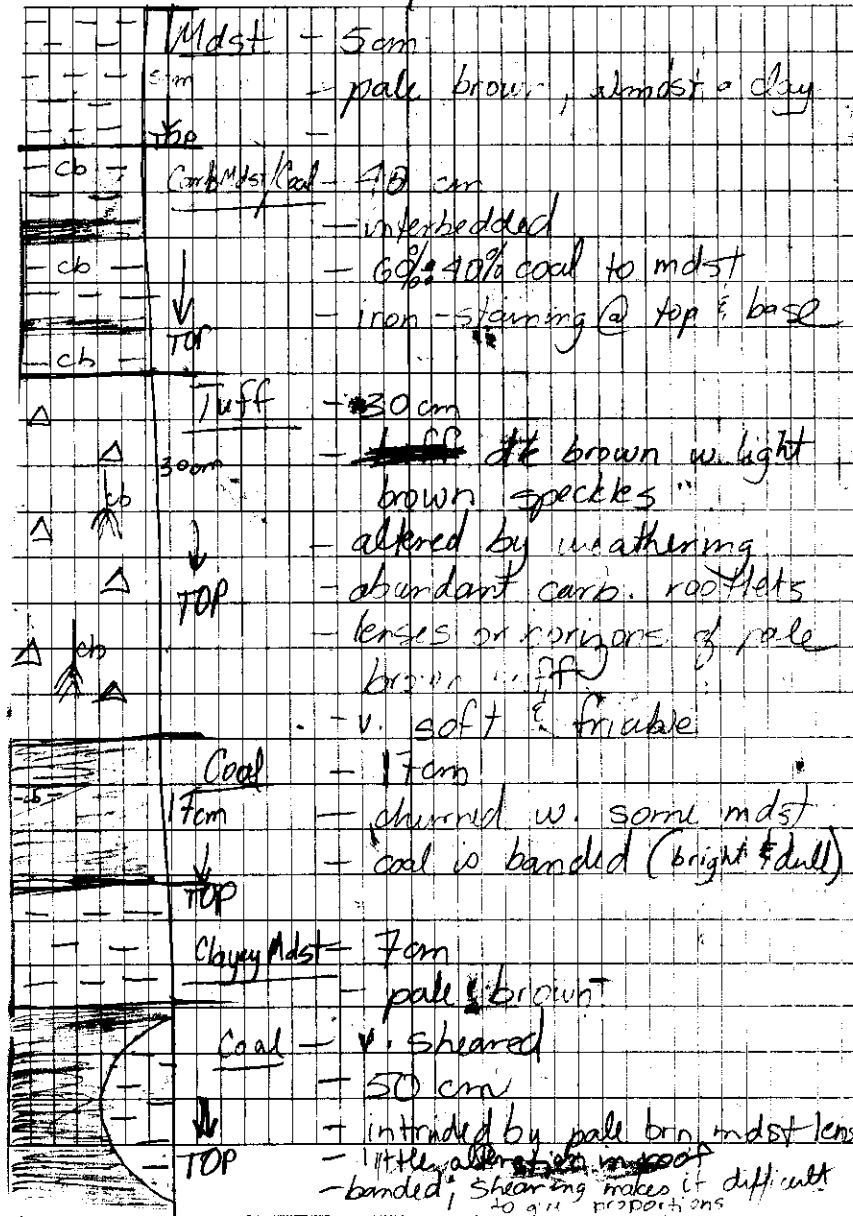 Mdst - 5cm
5cm - pale brown, almost a clay
TOP -
cb
Carb Mdst/Coal - 40 cm
- interbedded
cb - 60%:40% coal to mdst
- iron-staining @ top & base
TOP
cb
Tuff - 30cm
30cm - dk brown w. light
cb brown speckles
- altered by weathering
TOP - abundant carb. rootlets
cb - lenses or horizons of pale
brown tuff
- v. soft & friable
Coal - 17cm
cb
17cm - churned w. some mdst
- coal is banded (bright & dull)
TOP
Clayey Mdst - 7cm
- pale brown
Coal - v. sheared
- 50 cm
- intruded by pale brn mdst lens
TOP - little alteration
- banded; shearing makes it difficult
to give proportions